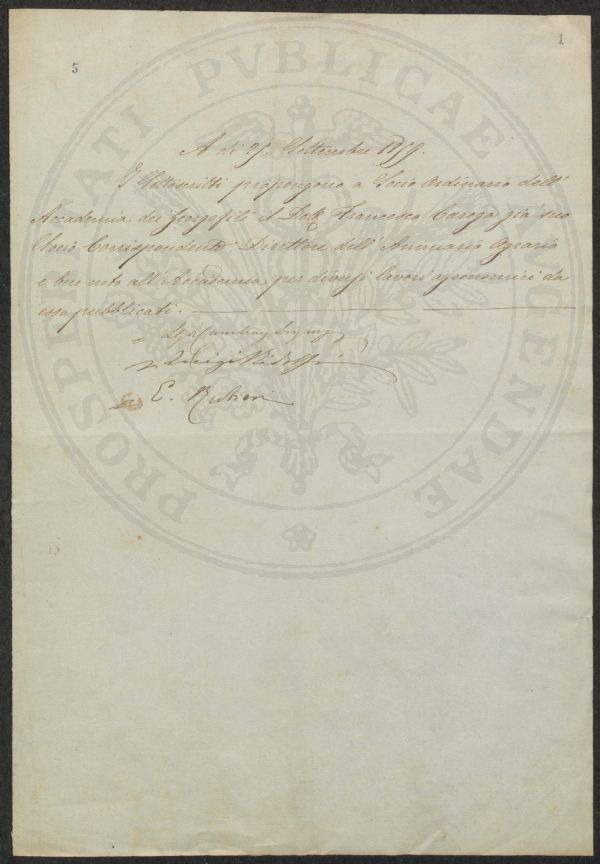 5
1
PROSPERITATI PVBLICAE AVGENDAE
A dì Settembre 1859.
I Sottoscritti propongono a Socio Ordinario dell'
Accademia dei Georgofili il Dott. Francesco Carega già suo
Socio Corrispondente, Direttore dell'Annuario Agrario
e ben noto all'Accademia per diversi lavori agronomici da
esso pubblicati.
Luigi Ridolfi
E. Rubieri